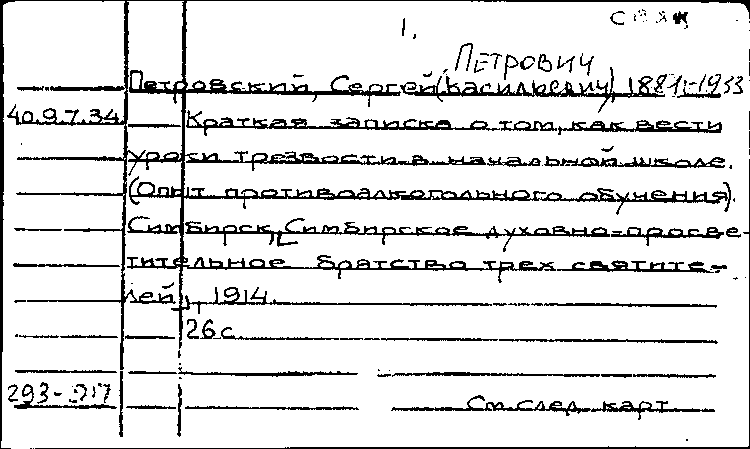 1.
ПЕТРОВИЧ
Петровский, Сергей (Васильевич), 1881-1933
40.9.7.34. Краткая записка о том, как вести
уроки трезвости в начальной школе.
(Опыт противоалкогольного обучения).
Симбирск, [Симбирское духовно-просве-
тительное братство трех святите-
лей], 1914.
26 с
293-
См. след. карт